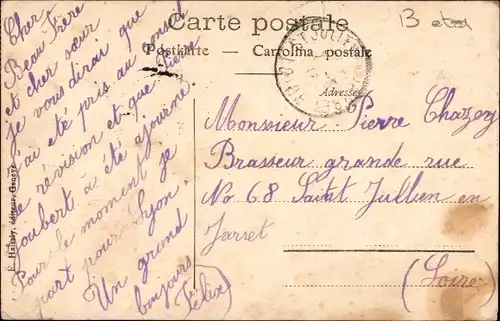 Carte postale
Postkarte — Cartolina postale
Adresse
B
Cher
Beau Frère
et cher sœur
Je vous dirai que
J'ai été pris au conseil
de révision et que Pierre
Joubert à été ajourné
Pour le moment je
part pour Lyon.
Un grand
bonjours
Félix
Monsieur Pierre Chazey
Brasseur grande rue
No 68 Saint Jullien en
Jarret
(Loire)
ST JULIEN
éditeur, Genève